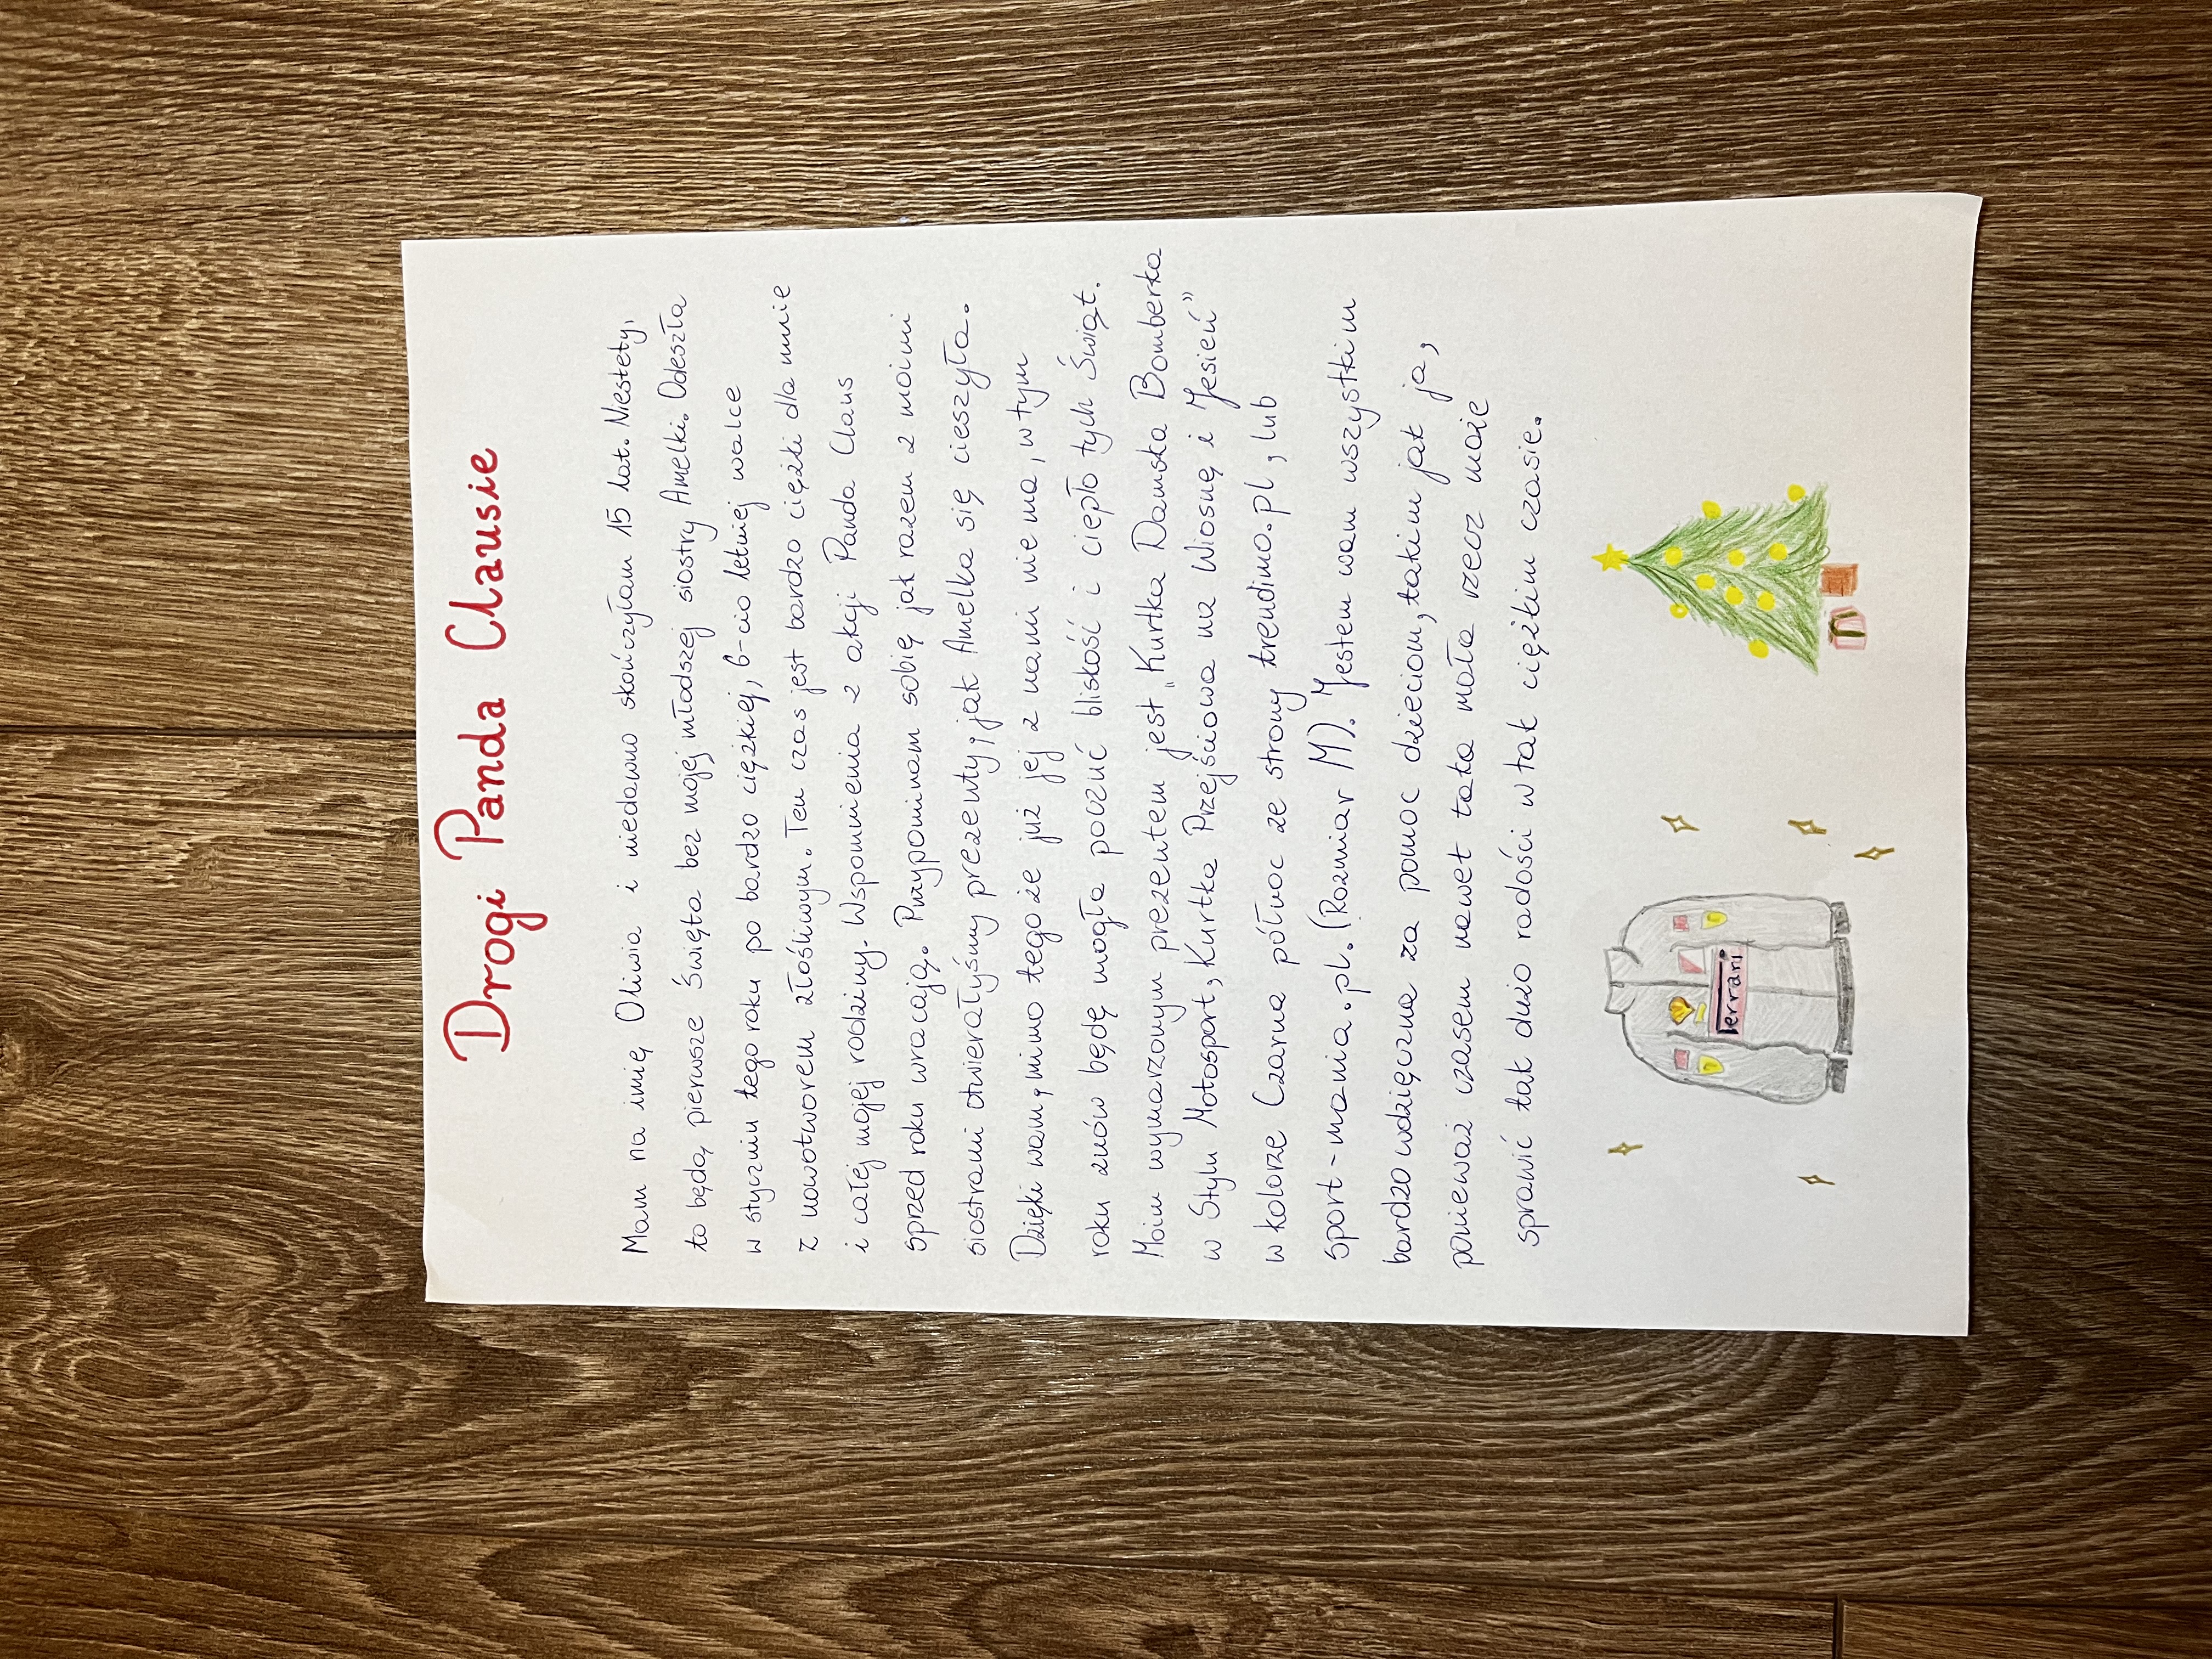 Drogi Panda Clausie
Mam na imię Oliwia i niedawno skończyłam 15 lat. Niestety,
to będą pierwsze Święta bez mojej młodszej siostry Amelki. Odeszła
w styczniu tego roku po bardzo ciężkiej, 6-cio letniej walce
z nowotworem złośliwym. Ten czas jest bardzo ciężki dla mnie
i całej mojej rodziny. Wspomnienia z akcji Panda Claus
sprzed roku wracają. Przypominam sobię jak razem z moimi
siostrami otwierałyśmy prezenty, jak Amelka się cieszyła.
Dzięki wam, mimo tego że już jej z nami nie ma, w tym
roku znów będę mogła poczuć bliskość i ciepło tych Świąt.
Moim wymarzonym prezentem jest „Kurtka Damska Bomberka
w Stylu Motosport, Kurtka Przejściowa na Wiosnę i Jesień”
w kolorze Czarna północ ze strony trendimo.pl, lub
sport-mania.pl. (Rozmiar M). Jestem wam wszystkim
bardzo wdzięczna za pomoc dzieciom, takim jak ja,
ponieważ czasem nawet taka mała rzecz może
sprawić tak dużo radości w tak ciężkim czasie.
Ferrari